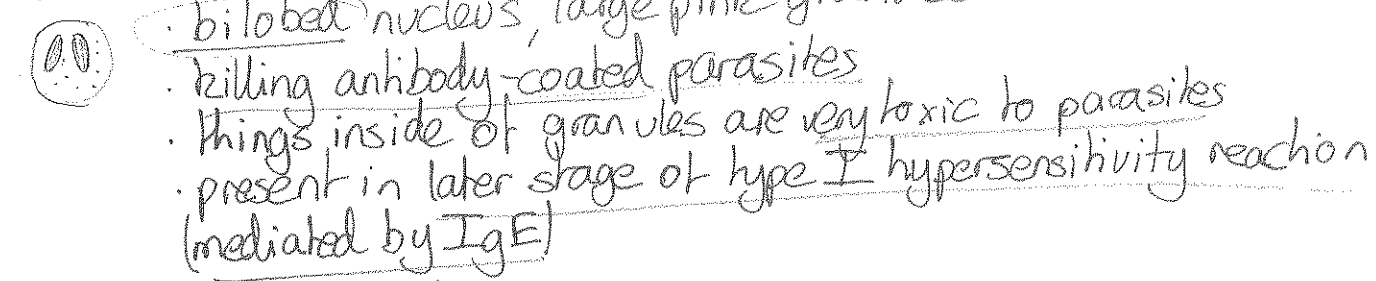 · bilobed nucleus, large pink
· killing antibody-coated parasites
· things inside of granules are very toxic to parasites
· present in later stage of type I hypersensitivity reaction
(mediated by IgE)